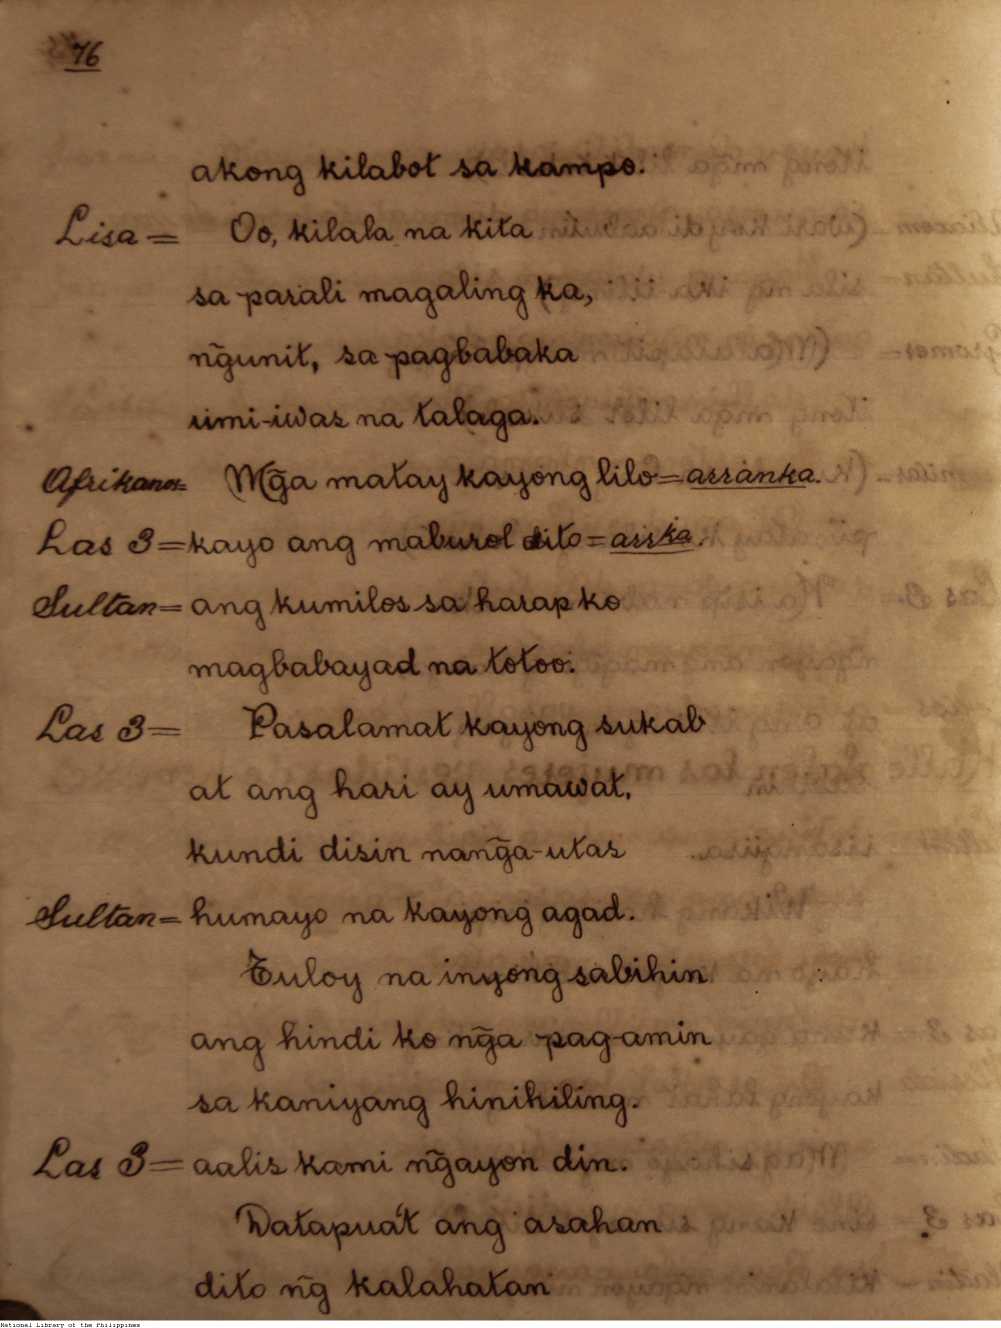 76
akong kilabot sa kampo.
Lisa = Oo, kilala na kita
sa parali magaling ka,
n͠gunit, sa pagbabaka
umi-iwas na talaga.
Afrikanos = Mg̃a matay kayong lilo = arranka.
Las 3 = kayo ang maburol dito = arrka.
Sultan = ang kumilos sa harap ko
magbabayad na totoo.
Las 3 = Pasalamat kayong sukab
at ang hari ay umawat,
kundi disin nan͠ga-utas
Sultan = humayo na kayong agad.
Tuloy na inyong sabihin
ang hindi ko n͠ga pag-amin
sa kaniyang hinihiling.
Las 3 = aalis kami n͠gayon din.
Datapua't ang asahan
dito n͠g kalahatan
National Library of the Philippines